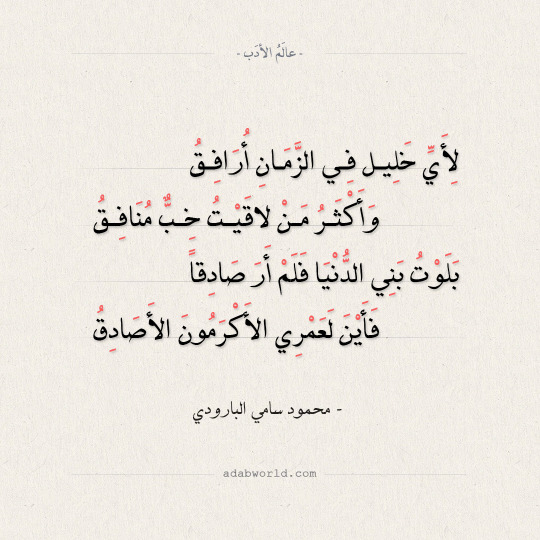 - عالَمُ الأدَب -
لِأَيِّ خَلِيـل فـي الزَّمَـانِ أُرَافِـقُ
وَأَكْثَـرُ مَـنْ لاقَيْـتُ خِـبٌّ مُنَافِـقُ
بَلَوْتُ بَنِي الدُّنْيَا فَلَمْ أَرَ صَادِقاً
فَأَيْنَ لَعَمْرِي الأَكْرَمُونَ الأَصَادِقُ
- محمود سامي البارودي
adabworld.com